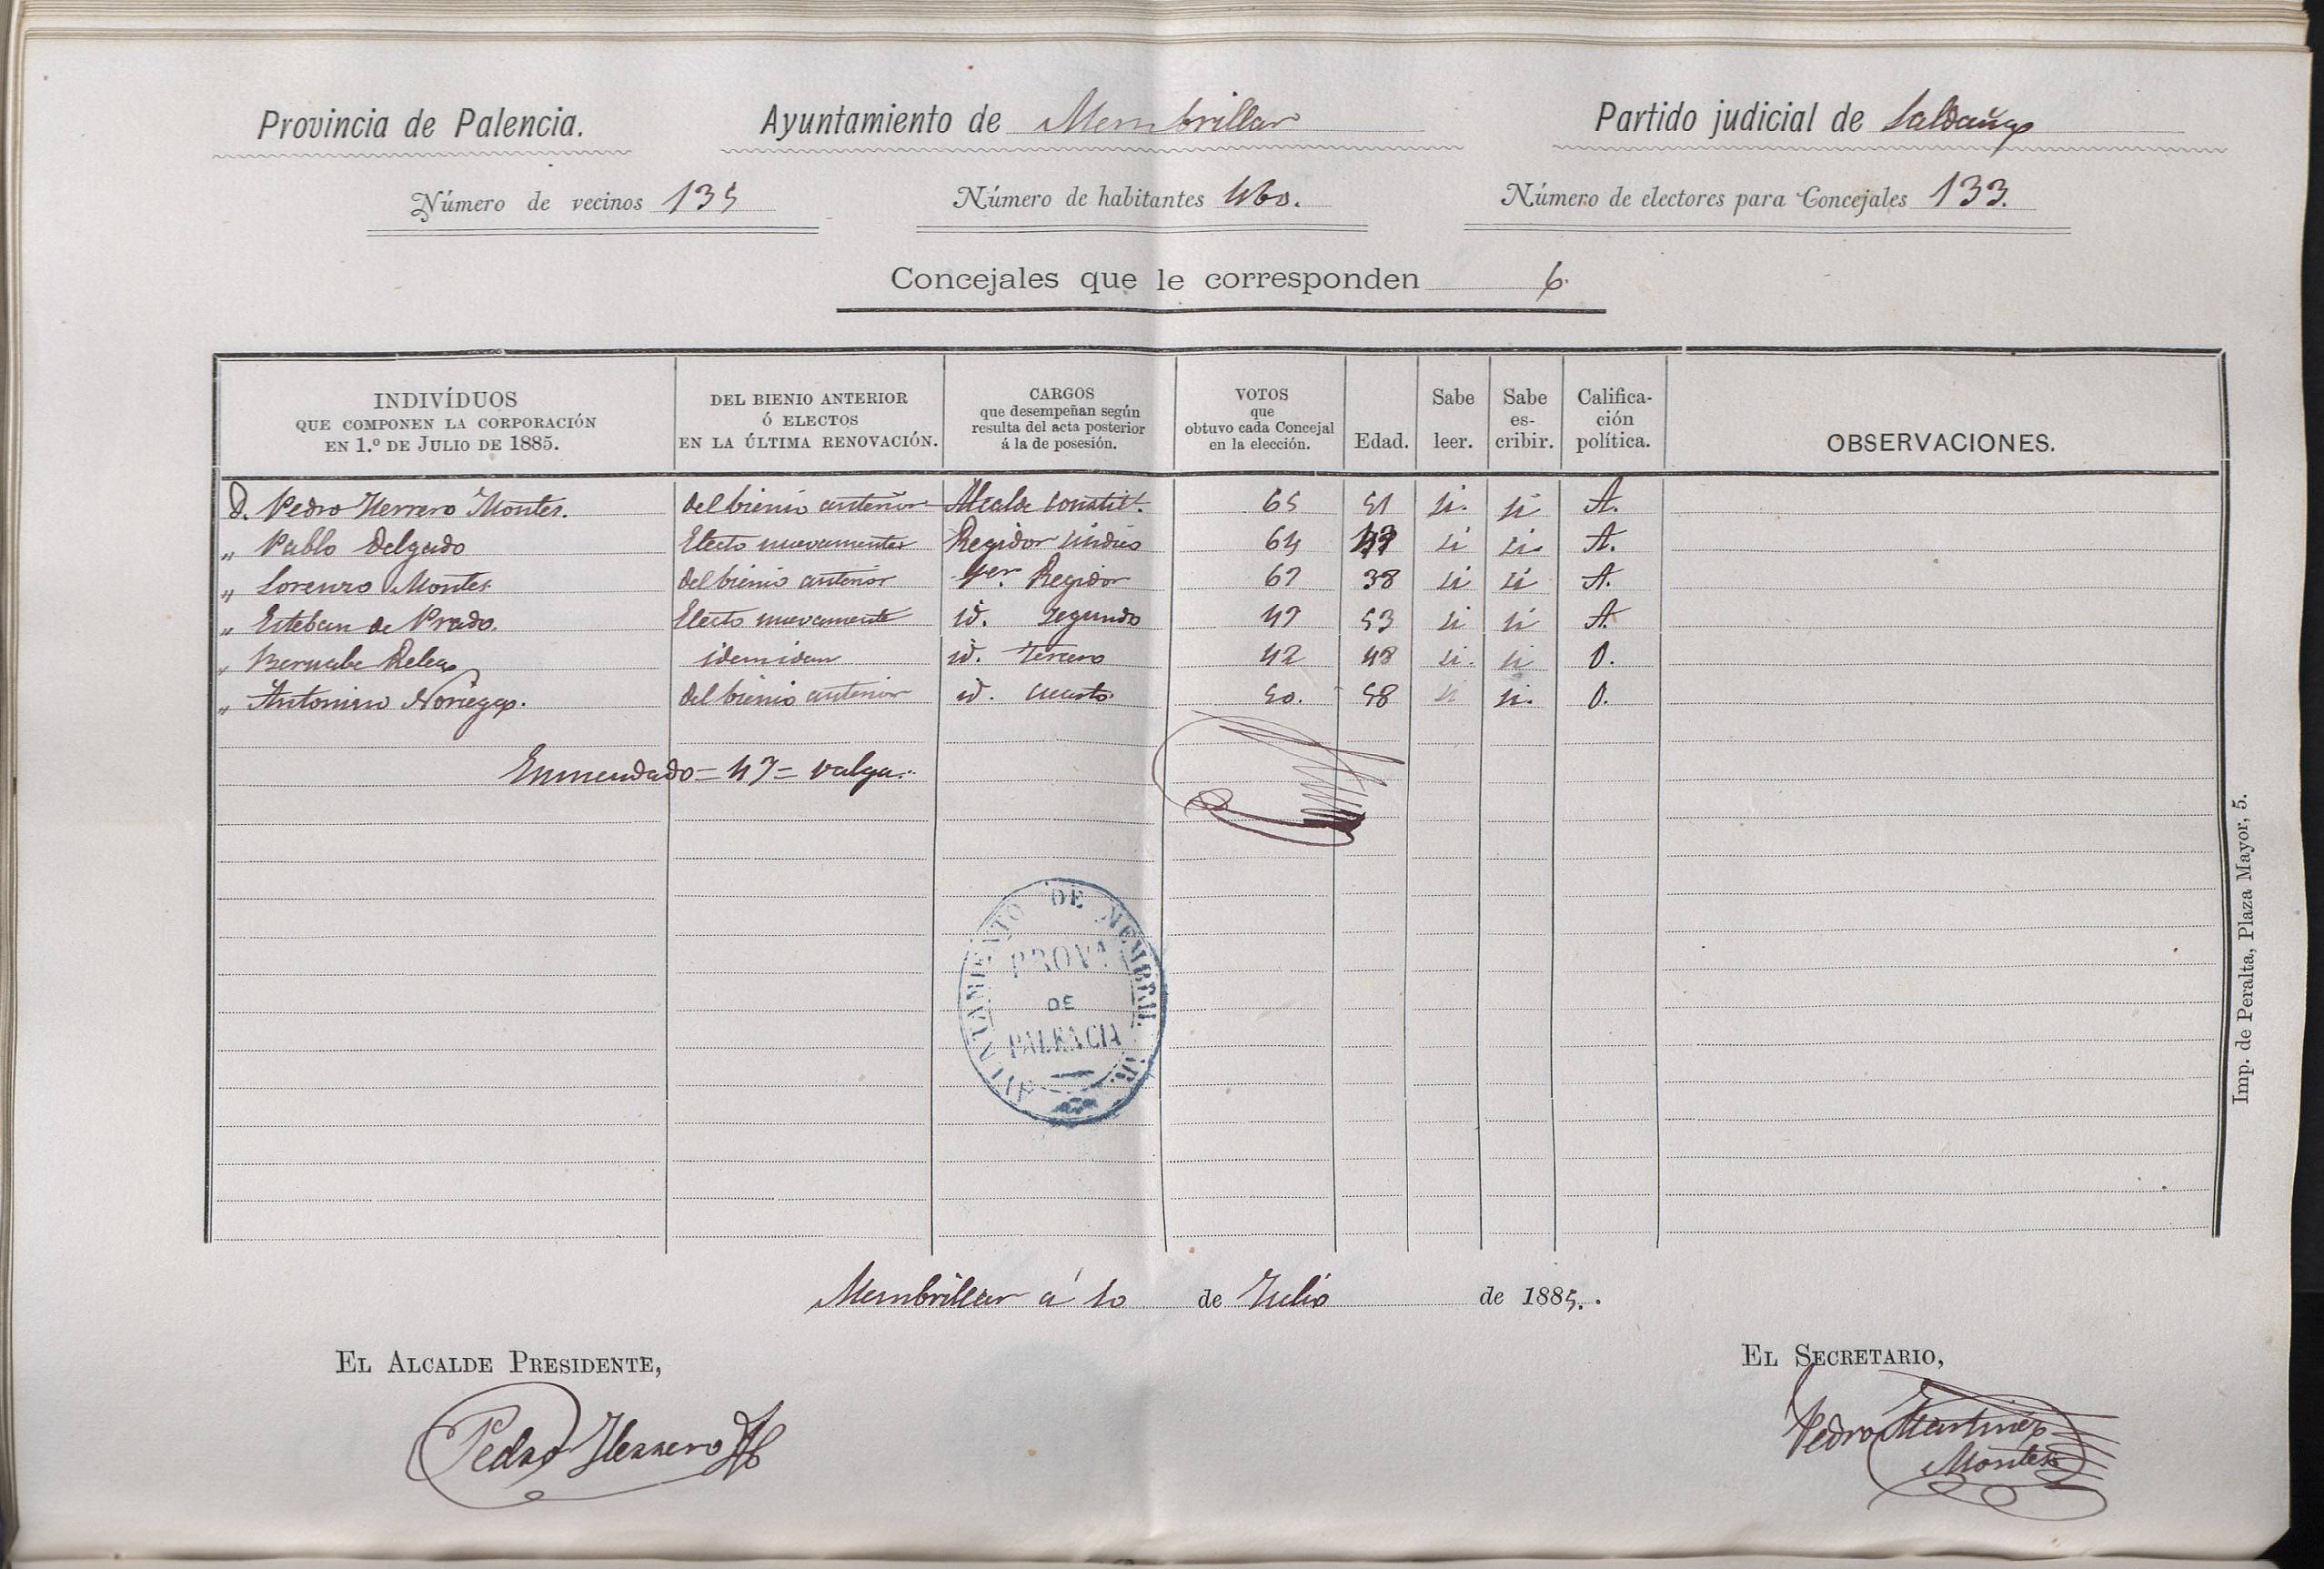 Provincia de Palencia. Ayuntamiento de Membrillar Partido judicial de Saldaña
Número de vecinos 135 Número de habitantes 460. Número de electores para Concejales 133.
Concejales que le corresponden 6.
INDIVÍDUOS QUE COMPONEN LA CORPORACIÓN EN 1.º DE JULIO DE 1885. DEL BIENIO ANTERIOR Ó ELECTOS EN LA ÚLTIMA RENOVACIÓN. CARGOS que desempeñan según resulta del acta posterior á la de posesión. VOTOS que obtuvo cada Concejal en la elección. Edad. Sabe leer. Sabe es-cribir. Califica-ción política. OBSERVACIONES.
D. Pedro Herrero Montes. del bienio anterior Alcalde constit.l 65 51 si. si A.
" Pablo Delgado Electo nuevamente Regidor síndico 64 47 si si. A.
" Lorenzo Montes del bienio anterior 1er. Regidor 67 38 si si A.
" Esteban de Prado. Electo nuevamente id. segundo 47 53 si si A.
" Bernabe Relea idem idem id. tercero 42 48 si. si O.
" Antonino Noriega. del bienio anterior id. cuarto 50. 58 si si. O.
Enmendado = 47 = valga.
AYUNTAMIENTO DE MEMBRILLAR
PROVA
DE
PALENCIA
Imp. de Peralta, Plaza Mayor, 5.
Membrillar á 10 de Julio de 1885.
EL ALCALDE PRESIDENTE, EL SECRETARIO,
Pedro Herrero Pedro Martinez
Montes